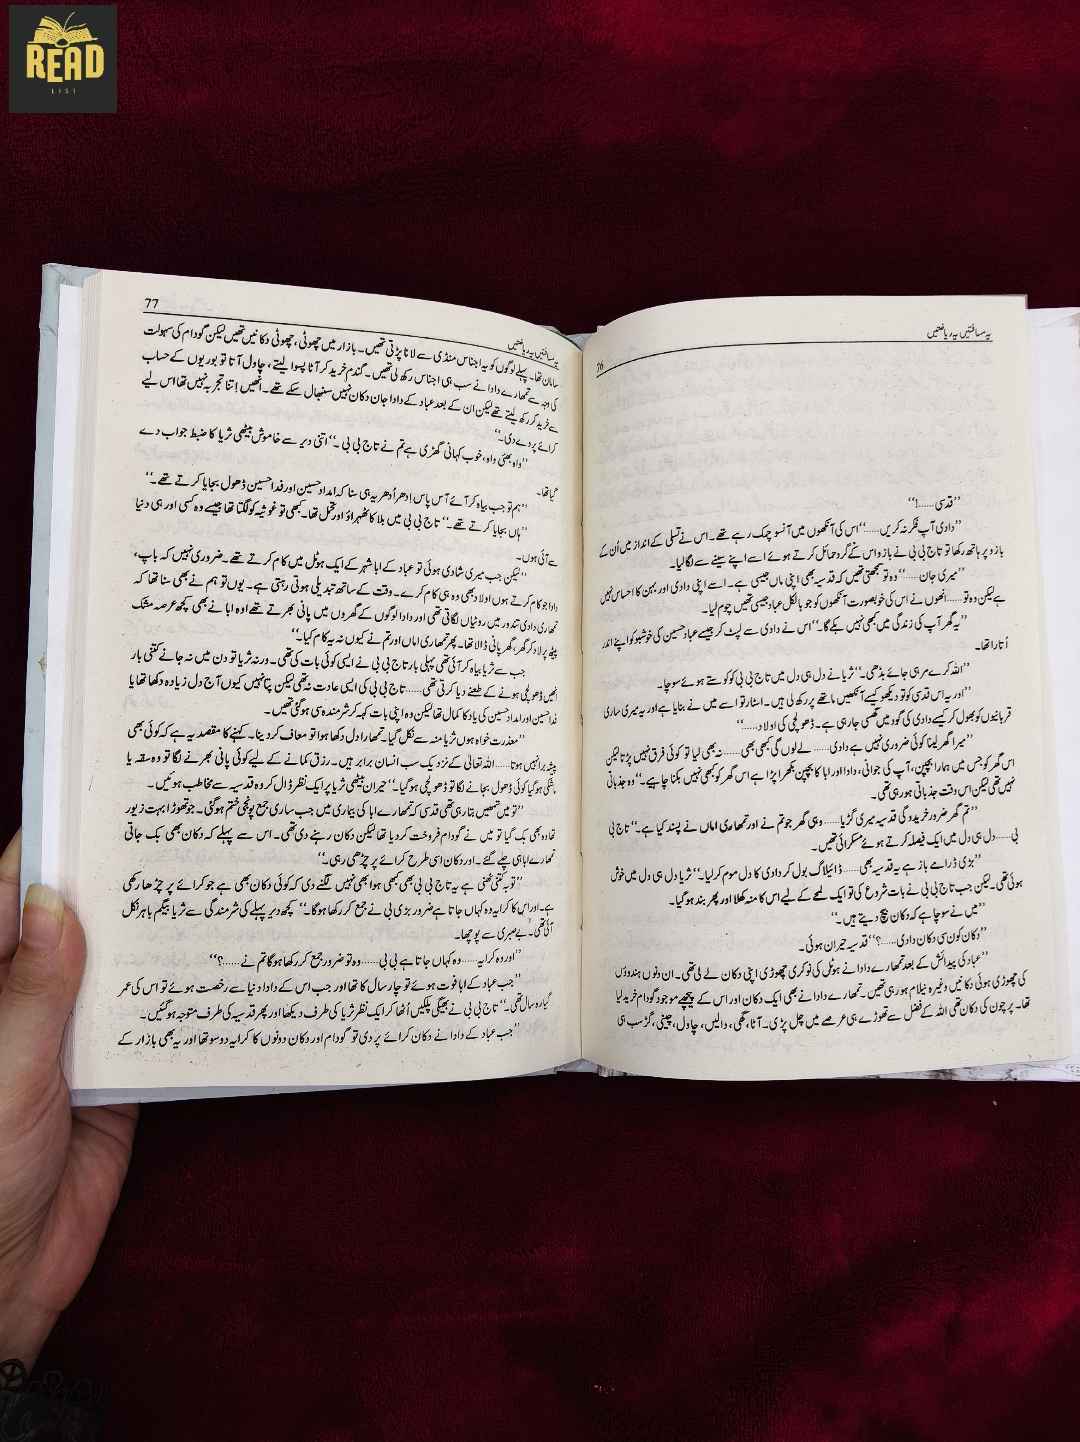 READ
LIST
یہ مسافتیں یہ ریاضتیں
76
’’قدسی……!‘‘
’’دادی آپ فکر نہ کریں……‘‘ اس کی آنکھوں میں آنسو چمک رہے تھے۔ اس نے تسلی کے انداز میں اُن کے
بازو پر ہاتھ رکھا تو تاج بی بی نے بازو اس کے گرد حمائل کرتے ہوئے اسے اپنے سینے سے لگا لیا۔
’’میری جان……‘‘ وہ تو سمجھتی تھیں کہ قدسیہ بھی اپنی ماں جیسی ہے۔ اسے اپنی دادی اور بہن کا احساس نہیں
ہے لیکن وہ تو…… انھوں نے اس کی خوبصورت آنکھوں کو جو بالکل عباد جیسی تھیں چوم لیا۔
’’یہ گھر آپ کی زندگی میں کبھی نہیں بکے گا۔‘‘ اس نے دادی سے لپٹ کر جیسے عباد حسین کی خوشبو کو اپنے اندر
اُتارا تھا۔
’’اللہ کرے مر ہی جائے بڈھی۔‘‘ ثریا نے دل ہی دل میں تاج بی بی کو کوستے ہوئے سوچا۔
’’اور یہ اس قدسی کو تو دیکھو کیسے آنکھیں ماتھے پر رکھ لی ہیں۔ اسٹار تو اسے میں نے بنایا ہے اور یہ میری ساری
قربانیوں کو بھول کر کیسے دادی کی گود میں گھسی جا رہی ہے۔ ڈھولچی کی اولاد……‘‘
’’میرا گھر لینا کوئی ضروری نہیں ہے دادی…… لے لوں گی کبھی بھی…… نہ بھی لیا تو کوئی فرق نہیں پڑتا لیکن
اس گھر کو جس میں ہمارا بچپن، آپ کی جوانی، دادا اور ابا کا بچپن بکھرا پڑا ہے اس گھر کو کبھی نہیں بکنا چاہیے۔‘‘ وہ جذباتی
نہیں تھی لیکن اس وقت جذباتی ہو رہی تھی۔
’’تم گھر ضرور خریدو گی قدسیہ میری گڑیا…… وہی گھر جو تم نے اور تمھاری اماں نے پسند کیا ہے۔‘‘ تاج بی
بی…… دل ہی دل میں ایک فیصلہ کرتے ہوئے مسکرائی تھیں۔
’’بڑی ڈرامے باز ہے یہ قدسیہ بھی…… ڈائیلاگ بول کر دادی کا دل موم کر لیا۔‘‘ ثریا دل ہی دل میں خوش
ہوئی تھی۔ لیکن جب تاج بی بی نے بات شروع کی تو ایک لمحے کے لیے اس کا منہ کھلا اور پھر بند ہو گیا۔
’’میں نے سوچا ہے کہ دکان بیچ دیتے ہیں۔‘‘
’’دکان کون سی دکان دادی……؟‘‘ قدسیہ حیران ہوئی۔
’’عباد کی پیدائش کے بعد تمھارے دادا نے ہوٹل کی نوکری چھوڑی اپنی دکان لے لی تھی۔ ان دنوں ہندوؤں
کی چھوڑی ہوئی دکانیں وغیرہ نیلام ہو رہی تھیں۔ تمھارے دادا نے بھی ایک دکان اور اس کے پیچھے موجود گودام خرید لیا
تھا۔ پرچون کی دکان تھی اللہ کے فضل سے تھوڑے ہی عرصے میں چل پڑی۔ آٹا، گھی، دالیں، چاول، چینی، گڑ سب ہی
77
یہ مسافتیں یہ ریاضتیں
سامان تھا۔ پہلے لوگوں کو یہ اجناس منڈی سے لانا پڑتی تھیں۔ بازار میں چھوٹی، چھوٹی دکانیں تھیں لیکن گودام کی سہولت
کی وجہ سے تمھارے دادا نے سب ہی اجناس رکھ لی تھیں۔ گندم خرید کر آٹا پسوا لیتے، چاول آتا تو بوریوں کے حساب
سے خرید کر رکھ لیتے تھے لیکن ان کے بعد عباد کے دادا جان دکان نہیں سنبھال سکے تھے۔ انھیں اِتنا تجربہ نہیں تھا اس لیے
کرائے پر دے دی۔‘‘
’’واہ بھئی واہ، خوب کہانی گھڑی ہے تم نے تاج بی بی۔‘‘ اتنی دیر سے خاموش بیٹھی ثریا کا ضبط جواب دے
گیا تھا۔
’’ہم تو جب بیاہ کر آئے آس پاس اِدھر اُدھر یہ ہی سنا کہ امداد حسین اور فدا حسین ڈھول بجایا کرتے تھے۔‘‘
’’ہاں بجایا کرتے تھے۔‘‘ تاج بی بی میں بلا کا ٹھہراؤ اور تحمل تھا۔ کبھی تو غوثیہ کو لگتا تھا جیسے وہ کسی اور ہی دنیا
سے آئی ہوں۔
’’لیکن جب میری شادی ہوئی تو عباد کے ابا شہر کے ایک ہوٹل میں کام کرتے تھے۔ ضروری نہیں کہ باپ،
دادا جو کام کرتے ہوں اولاد بھی وہ ہی کام کرے۔ وقت کے ساتھ تبدیلی ہوتی رہتی ہے۔ یوں تو ہم نے بھی سنا تھا کہ
تمھاری دادی تندور میں روٹیاں لگاتی تھی اور دادا لوگوں کے گھروں میں پانی بھرتے تھے اوہ ابا نے بھی کچھ عرصہ مشک
پیٹھ پر لاد کر گھر، گھر پانی ڈالا تھا۔ پھر تمھاری اماں اور تم نے کیوں نہ یہ کام کیا۔‘‘
جب سے ثریا بیاہ کر آئی تھی پہلی بار تاج بی بی نے ایسی کوئی بات کی تھی۔ ورنہ ثریا تو دن میں نہ جانے کتنی بار
انھیں ڈھولچی ہونے کے طعنے دیا کرتی تھی…… تاج بی بی کی ایسی عادت نہ تھی لیکن پتا نہیں کیوں آج دل زیادہ دکھا تھا یا
فدا حسین اور امداد حسین کی یاد کا کمال تھا لیکن وہ اپنی بات کہہ کر شرمندہ سی ہو گئی تھیں۔
’’معذرت خواہ ہوں ثریا منہ سے نکل گیا۔ تمھارا دل دکھا ہوا تو معاف کر دینا۔ کہنے کا مقصد یہ ہے کہ کوئی بھی
پیشہ برا نہیں ہوتا…… اللہ تعالیٰ کے نزدیک سب انسان برابر ہیں۔ رزق کمانے کے لیے کوئی پانی بھرنے لگا تو وہ سقہ یا
ماشکی ہو گیا کوئی ڈھول بجانے لگا تو ڈھولچی ہو گیا۔‘‘ حیران بیٹھی ثریا پر ایک نظر ڈال کر وہ قدسیہ سے مخاطب ہوئیں۔
’’تو میں تمھیں بتا رہی تھی قدسی کہ تمھارے ابا کی بیماری میں جب ساری جمع پونجی ختم ہو گئی۔ جو تھوڑا بہت زیور
تھا وہ بھی بک گیا تو میں نے گودام فروخت کر دیا تھا لیکن دکان رہنے دی تھی۔ اس سے پہلے کہ دکان بھی بک جاتی
تمھارے ابا ہی چلے گئے۔ اور دکان اسی طرح کرائے پر چڑھی رہی۔‘‘
’’توبہ کتنی گھنی ہے یہ تاج بی بی بھی کبھی ہوا بھی نہیں لگنے دی کہ کوئی دکان بھی ہے جو کرائے پر چڑھا رکھی
ہے۔ اور اس کا کرایہ وہ کہاں جاتا ہے ضرور بڑی بی نے جمع کر رکھا ہوگا۔‘‘ کچھ دیر پہلے کی شرمندگی سے ثریا بیگم باہر نکل
آئی تھی۔ بے صبری سے پوچھا۔
’’اور وہ کرایہ…… وہ کہاں جاتا ہے بی بی…… وہ تو ضرور جمع کر رکھا ہوگا تم نے……؟‘‘
’’جب عباد کے ابا فوت ہوئے تو چار سال کا تھا اور جب اس کے دادا دنیا سے رخصت ہوئے تو اس کی عمر
گیارہ سال تھی۔‘‘ تاج بی بی نے بھیگی پلکیں اُٹھا کر ایک نظر ثریا کی طرف دیکھا اور پھر قدسیہ کی طرف متوجہ ہو گئیں۔
’’جب عباد کے دادا نے دکان کرائے پر دی تو گودام اور دکان دونوں کا کرایہ دو سو تھا اور یہ بھی بازار کے